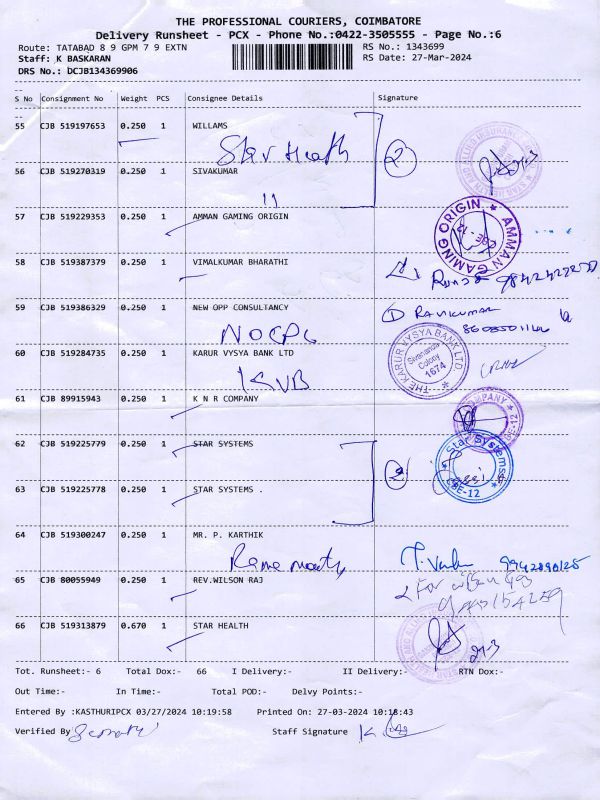 THE PROFESSIONAL COURIERS, COIMBATORE
Delivery Runsheet - PCX - Phone No.:0422-3505555 - Page No.:6
Route: TATABAD 8 9 GPM 7 9 EXTN RS No.: 1343699
Staff: K BASKARAN RS Date: 27-Mar-2024
DRS No.: DCJB134369906
S No Consignment No Weight PCS Consignee Details Signature
55 CJB 519197653 0.250 1 WILLAMS
Star Health 2
56 CJB 519270319 0.250 1 SIVAKUMAR
11
57 CJB 519229353 0.250 1 AMMAN GAMING ORIGIN
AMMAN GAMING ORIGIN CBE - 12
58 CJB 519387379 0.250 1 VIMALKUMAR BHARATHI
59 CJB 519386329 0.250 1 NEW OPP CONSULTANCY
NOCPC RAVIKUMAR
60 CJB 519284735 0.250 1 KARUR VYSYA BANK LTD
KVB
THE KARUR VYSYA BANK LTD Sivananda Colony 1674
61 CJB 89915943 0.250 1 K N R COMPANY
62 CJB 519225779 0.250 1 STAR SYSTEMS
Star Systems CBE-12
2
63 CJB 519225778 0.250 1 STAR SYSTEMS .
64 CJB 519300247 0.250 1 MR. P. KARTHIK
9942890125
65 CJB 80055949 0.250 1 REV.WILSON RAJ
For
66 CJB 519313879 0.670 1 STAR HEALTH
Tot. Runsheet:- 6 Total Dox:- 66 I Delivery:- II Delivery:- RTN Dox:-
Out Time:- In Time:- Total POD:- Delvy Points:-
Entered By :KASTHURIPCX 03/27/2024 10:19:58 Printed On: 27-03-2024 10:18:43
Verified By Staff Signature